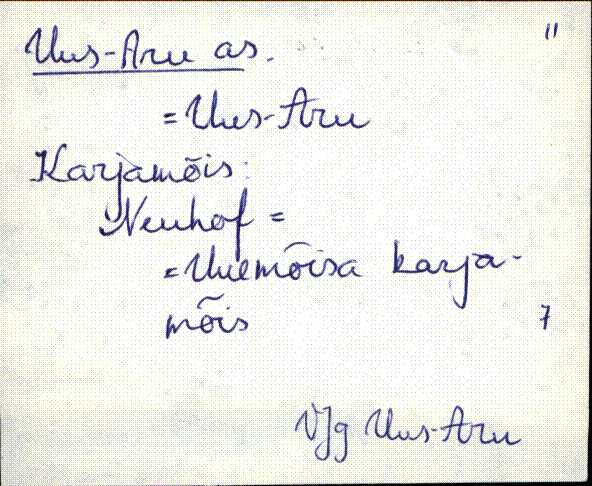 Uus-Aru as. "
= Uus-Aru
Karjamõis:
Neuhof =
= Uuemõisa karja-
mõis 7
VJg Uus-Aru